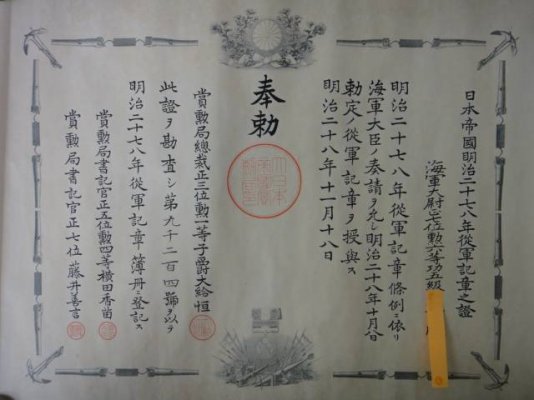 日本帝國明治二十七八年從軍記章之證
海軍大尉正七位勲六等功五級
明治二十七八年從軍記章條例ニ依リ
海軍大臣ノ奏請ヲ允シ明治二十八年十月八日
勅定ノ從軍記章ヲ授與ス
明治二十八年十一月十八日
奉勅
賞勲局總裁正三位勲一等子爵大給恒
此證ヲ勘査シ第九千二百四號ヲ以テ
明治二十七八年從軍記章ノ薄冊ニ登記ス
賞勲局書記官正五位勲四等横田香苗
賞勲局書記官正七位藤井善吉